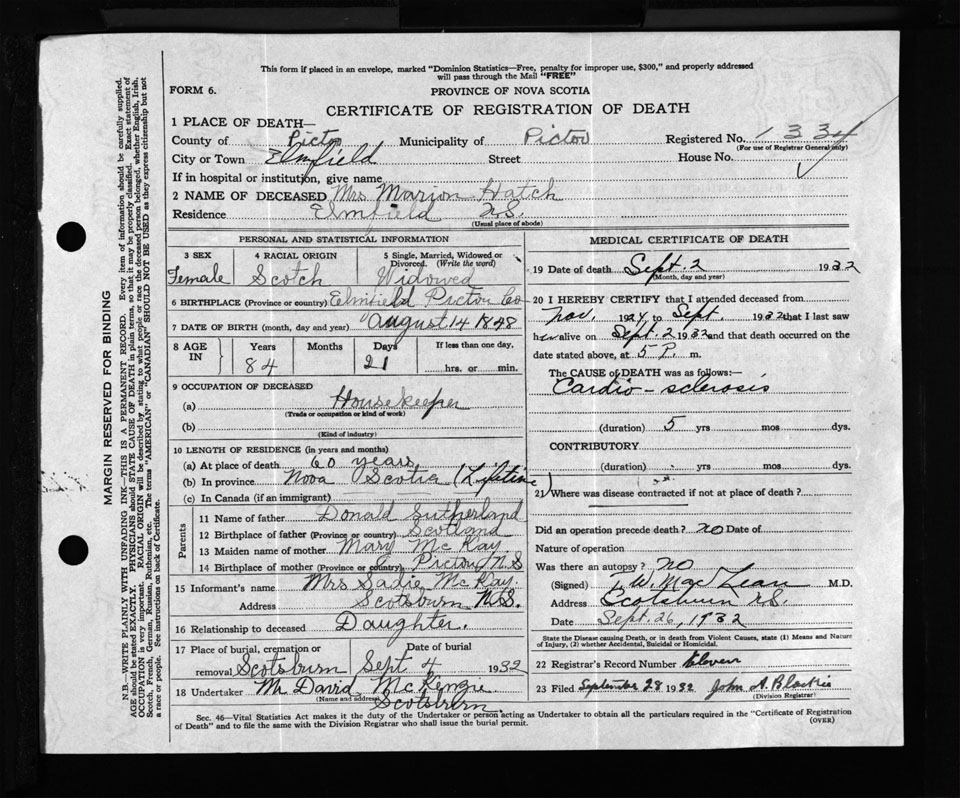 This form if placed in an envelope, marked "Dominion Statistics—Free, penalty for improper use, $300," and properly addressed
will pass through the Mail "FREE"
FORM 6.
PROVINCE OF NOVA SCOTIA
CERTIFICATE OF REGISTRATION OF DEATH
1 PLACE OF DEATH—
County of Pictou Municipality of Pictou Registered No. 1334
(For use of Registrar General only)
City or Town Elmfield Street House No.
If in hospital or institution, give name
2 NAME OF DECEASED Mrs Marion Hatch
Residence Elmfield N.S.
(Usual place of abode)
PERSONAL AND STATISTICAL INFORMATION
3 SEX Female
4 RACIAL ORIGIN Scotch
5 Single, Married, Widowed or Divorced. (Write the word) Widowed
6 BIRTHPLACE (Province or country) Elmfield Pictou Co
7 DATE OF BIRTH (month, day and year) August 14 1848
8 AGE IN Years 84 Months Days 21 If less than one day, hrs. or min.
9 OCCUPATION OF DECEASED
(a) Housekeeper
(Trade or occupation or kind of work)
(b)
(Kind of industry)
10 LENGTH OF RESIDENCE (in years and months)
(a) At place of death 60 years
(b) In province Nova Scotia (Lifetime)
(c) In Canada (if an immigrant)
Parents
11 Name of father Donald Sutherland
12 Birthplace of father (Province or country) Scotland
13 Maiden name of mother Mary McKay
14 Birthplace of mother (Province or country) Pictou N.S
15 Informant's name Mrs Sadie McKay.
Address Scotsburn N.S.
16 Relationship to deceased Daughter.
17 Place of burial, cremation or removal Scotsburn Date of burial Sept 4 1932
18 Undertaker Mr David McKenzie
(Name and address)
Scotsburn.
MEDICAL CERTIFICATE OF DEATH
19 Date of death Sept 2 1932
(Month, day and year)
20 I HEREBY CERTIFY that I attended deceased from
Nov. 1924 to Sept. 1932 that I last saw
her alive on Sept. 2 1932 and that death occurred on
date stated above, at 5 P. m.
The CAUSE of DEATH was as follows:—
Cardio-sclerosis
(duration) 5 yrs mos. dys.
CONTRIBUTORY
(duration) yrs mos. dys.
21 Where was disease contracted if not at place of death?
Did an operation precede death? no Date of
Nature of operation
Was there an autopsy? no
(Signed) T. W. MacLean M.D.
Address Scotsburn N.S.
Date Sept. 26, 1932
State the Disease causing Death, or in death from Violent Causes, state (1) Means and Nature
of Injury, (2) whether Accidental, Suicidal or Homicidal.
22 Registrar's Record Number Eleven
23 Filed September 28 1932 John A. Blaikie
(Division Registrar)
Sec. 46—Vital Statistics Act makes it the duty of the Undertaker or person acting as Undertaker to obtain all the particulars required in the "Certificate of Registration
of Death" and to file the same with the Division Registrar who shall issue the burial permit.
(OVER)
MARGIN RESERVED FOR BINDING
N.B.—WRITE PLAINLY WITH UNFADING INK—THIS IS A PERMANENT RECORD. Every item of information should be carefully supplied.
AGE should be stated EXACTLY. PHYSICIANS should STATE CAUSE OF DEATH in plain terms, so that it may be properly classified. Exact statement of
OCCUPATION is very important. RACIAL ORIGIN will be described by stating to what people or race the deceased person belonged, whether English, Irish,
Scotch, French, German, Russian, Ruthenian, etc. The terms "AMERICAN" or "CANADIAN" SHOULD NOT BE USED as they express citizenship but not
a race or people. See instructions on back of Certificate.